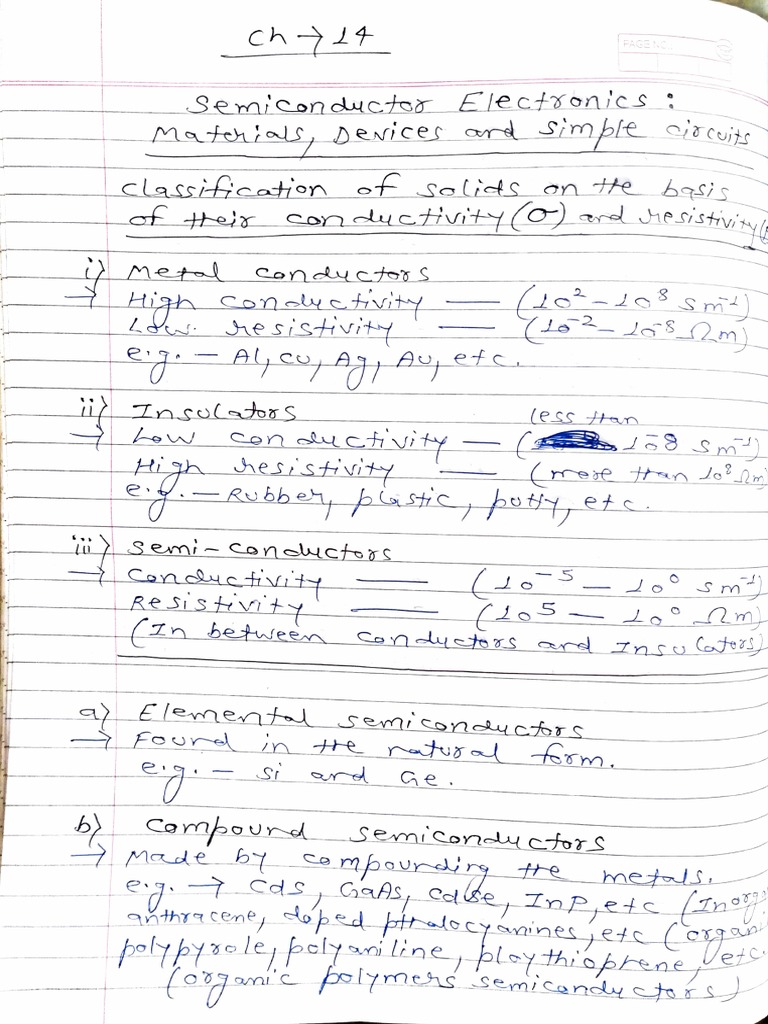 Ch → 14
PAGE NO.:
Semiconductor Electronics :
Materials, Devices and simple circuits
classification of solids on the basis
of their conductivity (σ) and resistivity (
i) Metal conductors
→ High conductivity — (10² – 10⁸ S m⁻¹)
Low resistivity — (10⁻² – 10⁻⁸ Ω m)
e.g. – Al, Cu, Ag, Au, etc.
ii) Insulators
less than
→ Low conductivity — ( 10⁻⁸ S m⁻¹)
High resistivity — (more than 10⁸ Ω m
e.g. – Rubber, plastic, putty, etc.
iii) semi-conductors
→ Conductivity — (10⁻⁵ – 10⁰ S m⁻¹)
Resistivity — (10⁵ – 10⁰ Ω m)
(In between conductors and Insulators)
a) Elemental semiconductors
→ Found in the natural form.
e.g. – Si and Ge.
b) Compound semiconductors
→ Made by compounding the metals.
e.g. → Cds, GaAs, Cdse, InP, etc (Inorga
anthracene, doped pthalocyanines, etc (organi
polypyrole, polyaniline, ploythiophene, etc.
(organic polymers semiconductors)